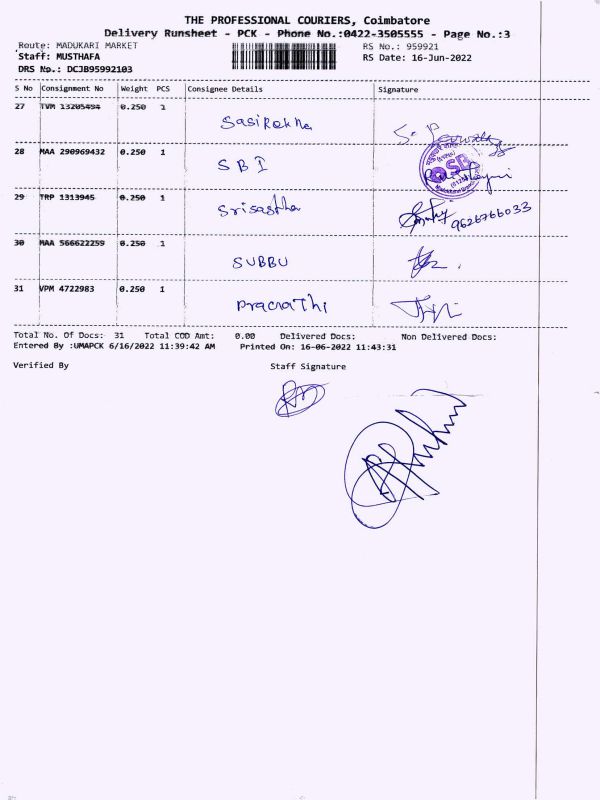 THE PROFESSIONAL COURIERS, Coimbatore
Delivery Runsheet - PCK - Phone No.:0422-3505555 - Page No.:3
Route: MADUKARI MARKET RS No.: 959921
Staff: MUSTHAFA RS Date: 16-Jun-2022
DRS No.: DCJB95992103
S No Consignment No Weight PCS Consignee Details Signature
27 TVM 13205494 0.250 1
Sasirekha
28 MAA 290969432 0.250 1
SBI
29 TRP 1313945 0.250 1
Srisastha
9626766033
30 MAA 566622259 0.250 1
SUBBU
31 VPM 4722983 0.250 1
Total No. Of Docs: 31 Total COD Amt: 0.00 Delivered Docs: Non Delivered Docs:
Entered By :UMAPCK 6/16/2022 11:39:42 AM Printed On: 16-06-2022 11:43:31
Verified By Staff Signature